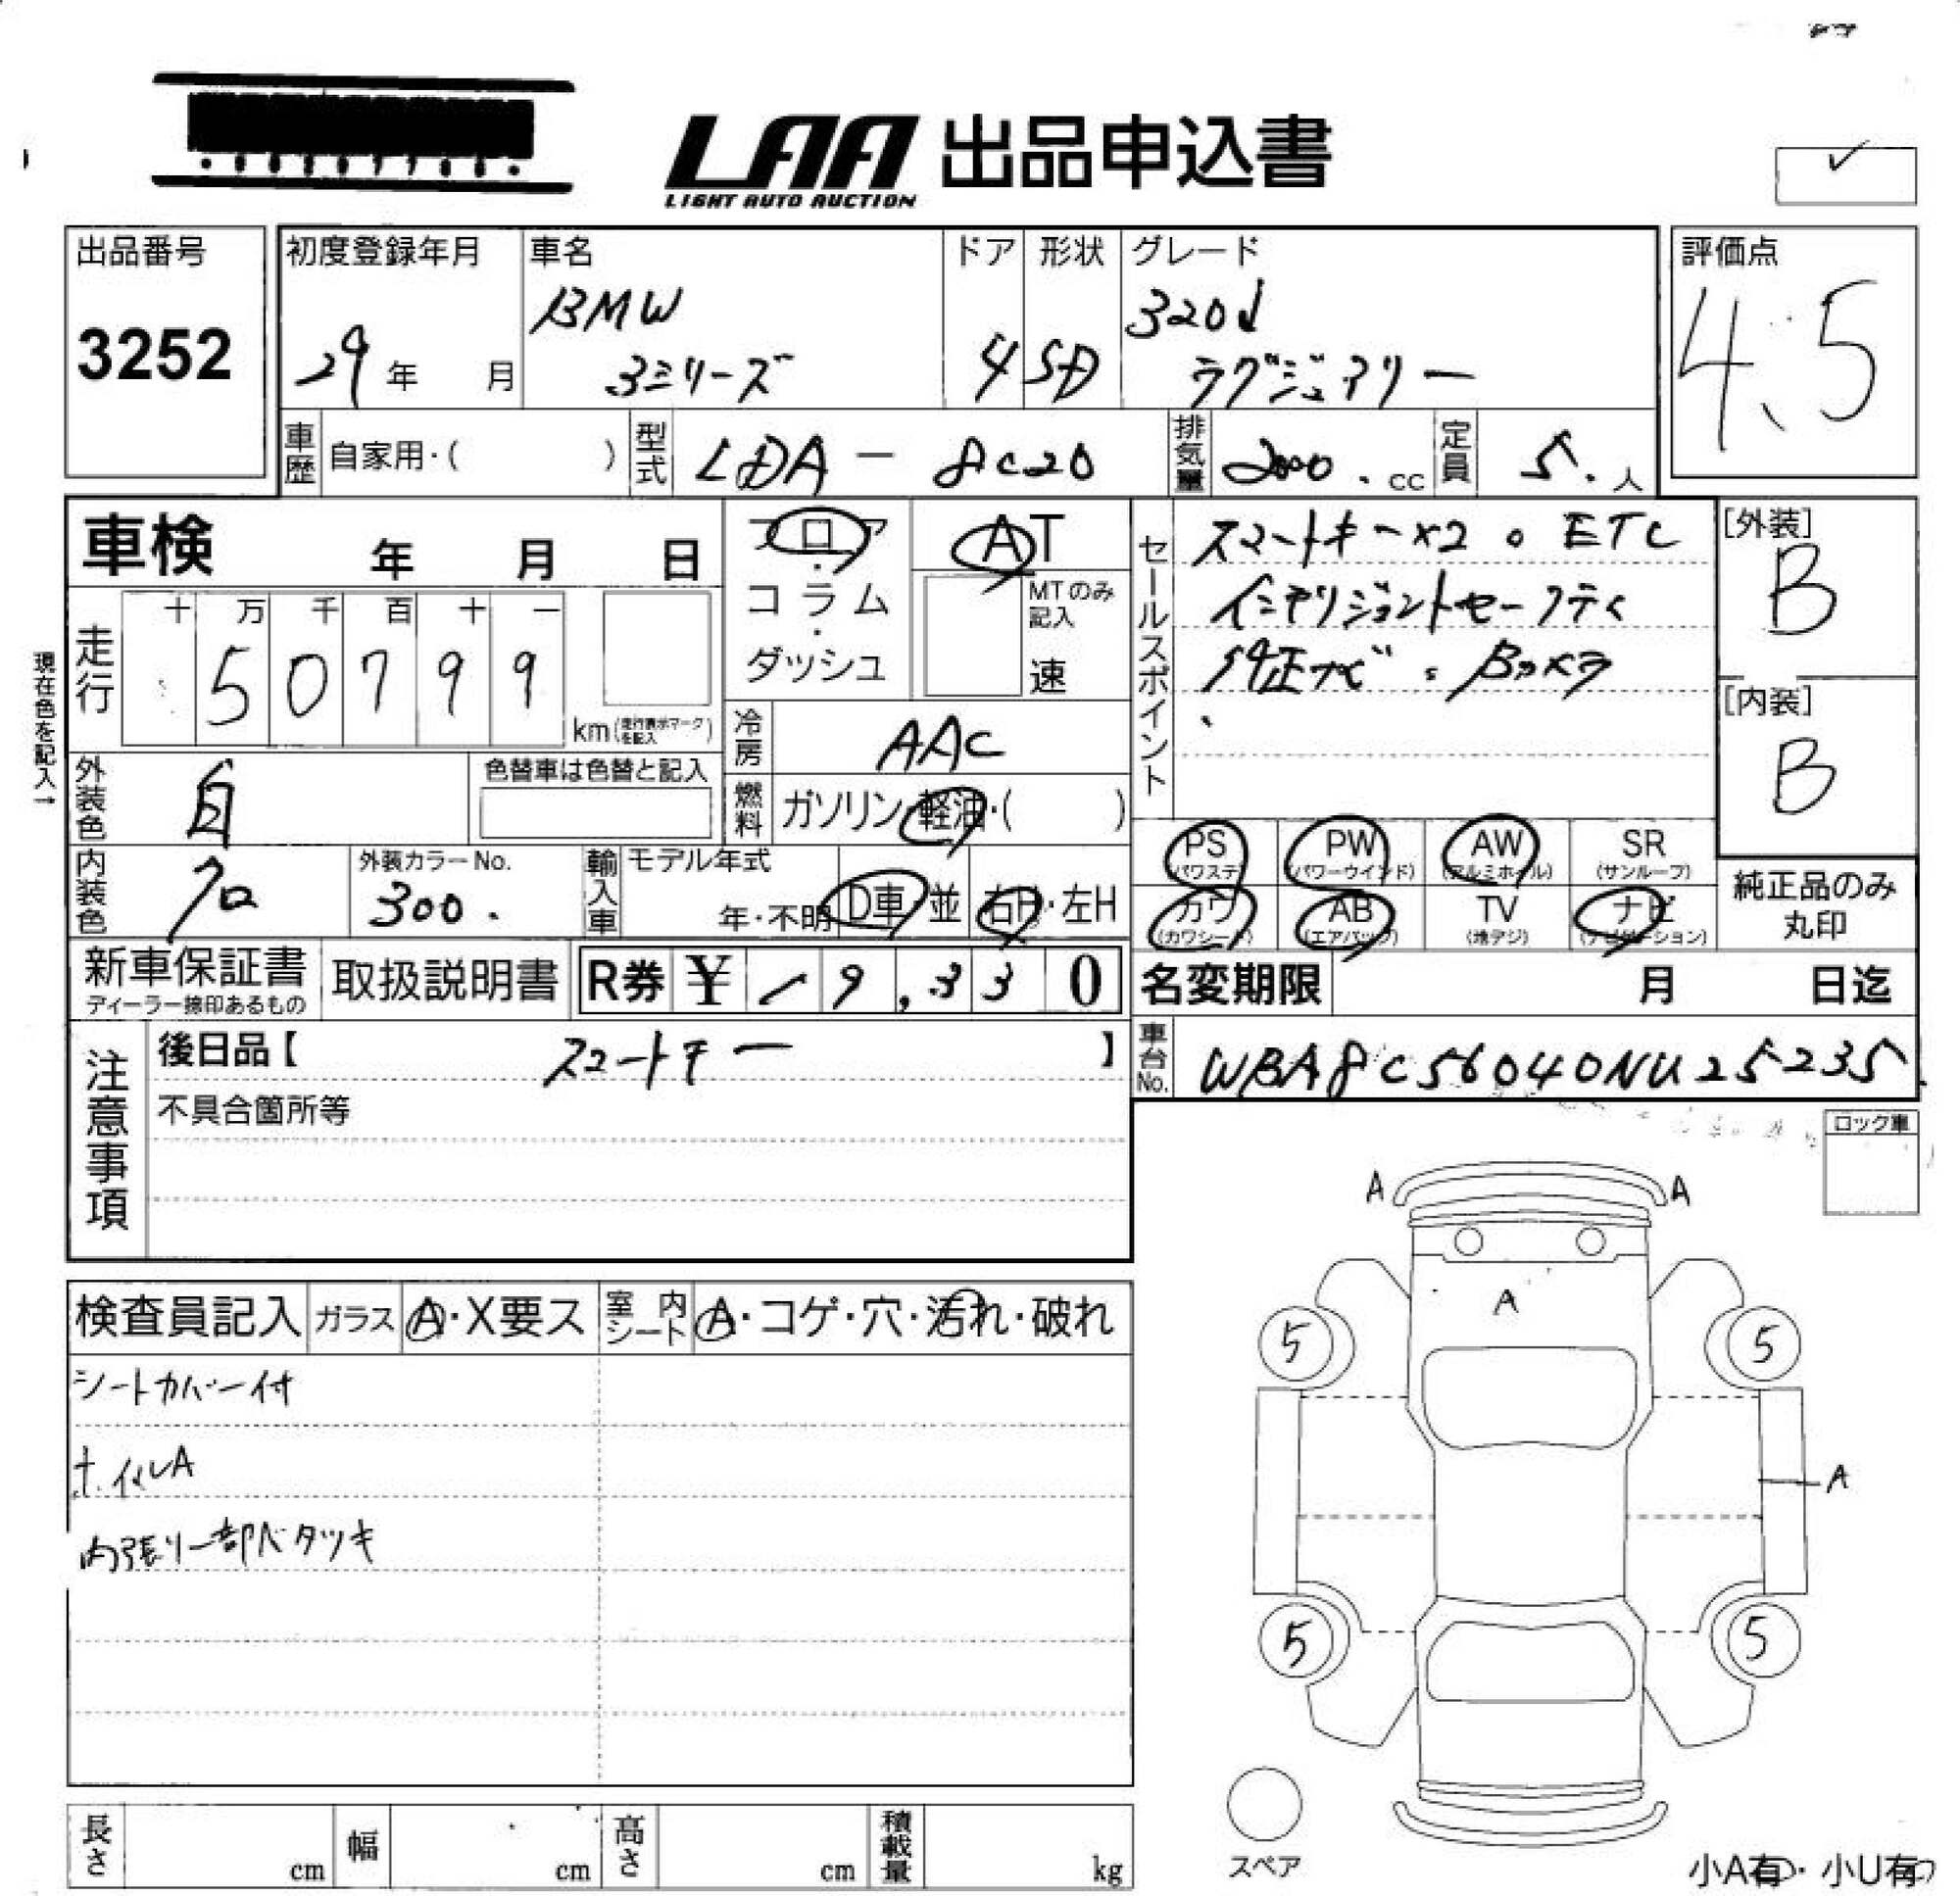 LAA 出品申込書
LIGHT AUTO AUCTION
出品番号
3252
初度登録年月
29年 月
車名
BMW
3シリーズ
ドア
4
形状
SD
グレード
320d
ラグジュアリー
評価点
4.5
車歴 自家用・( )
型式 LDA-8C20
排気量 2000.cc
定員 5.人
車検 年 月 日
フロア・コラム・ダッシュ
AT
MTのみ記入
速
セールスポイント
スマートキー×2。ETC
インテリジェントセーフティ
純正ナビ。Bカメラ
[外装]
B
[内装]
B
現在色を記入→
走行
十 万 千 百 十 一
5 0 7 9 9
km(走行表示マークを記入)
冷房 AAC
外装色 白
色替車は色替と記入
燃料 ガソリン・軽油・( )
内装色 クロ
外装カラーNo.
300.
輸入車
モデル年式
年・不明
D車 並
右H・左H
PS
(パワステ)
PW
(パワーウインド)
AW
(アルミホイル)
SR
(サンルーフ)
カワ
(カワシート)
AB
(エアバッグ)
TV
(地デジ)
ナビ
(ナビゲーション)
純正品のみ
丸印
新車保証書
ディーラー捺印あるもの
取扱説明書
R券 ¥ 19,330
名変期限 月 日迄
注意事項
後日品【 スマートキー 】
不具合箇所等
車台No. WBA8C56040NU25235
ロック車
検査員記入 ガラス A・X要ス
室内シート A・コゲ・穴・汚れ・破れ
シートカバー付
ホイルA
内張り一部ベタツキ
A A
A
5 5
A
5 5
スペア
小A有・小U有
長さ cm
幅 cm
高さ cm
積載量 kg